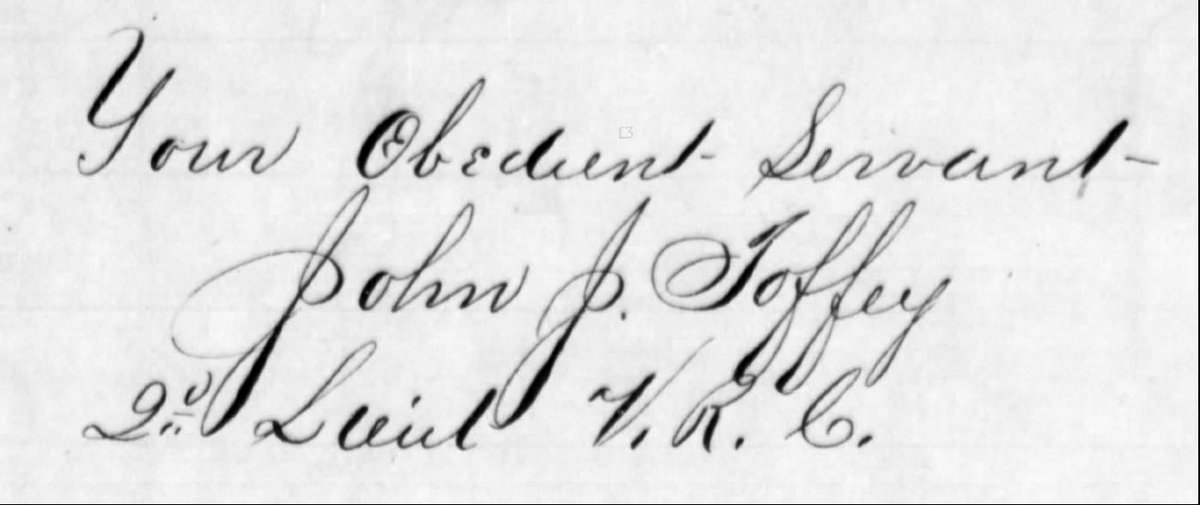 Your Obedient Servant
John J. Toffey
2d Lieut V. R. C.